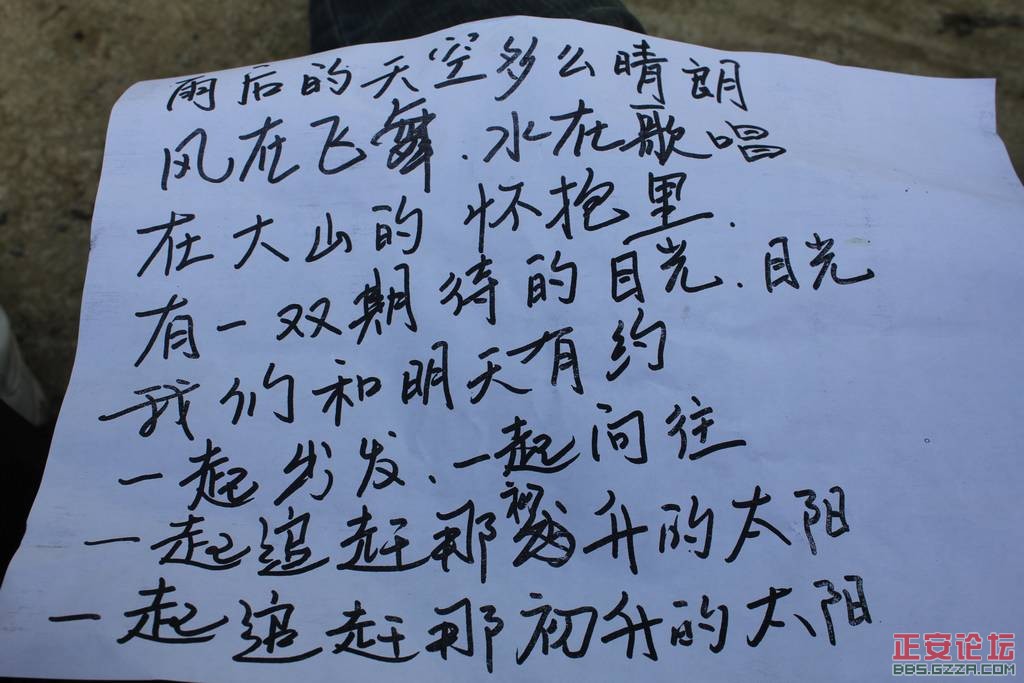 雨后的天空多么晴朗
风在飞舞.水在歌唱
在大山的怀抱里.
有一双期待的目光.目光
我们和明天有约
一起出发.一起问往
一起追赶那初升的太阳
一起追赶那初升的太阳
正安论坛
BBS.GZZA.COM